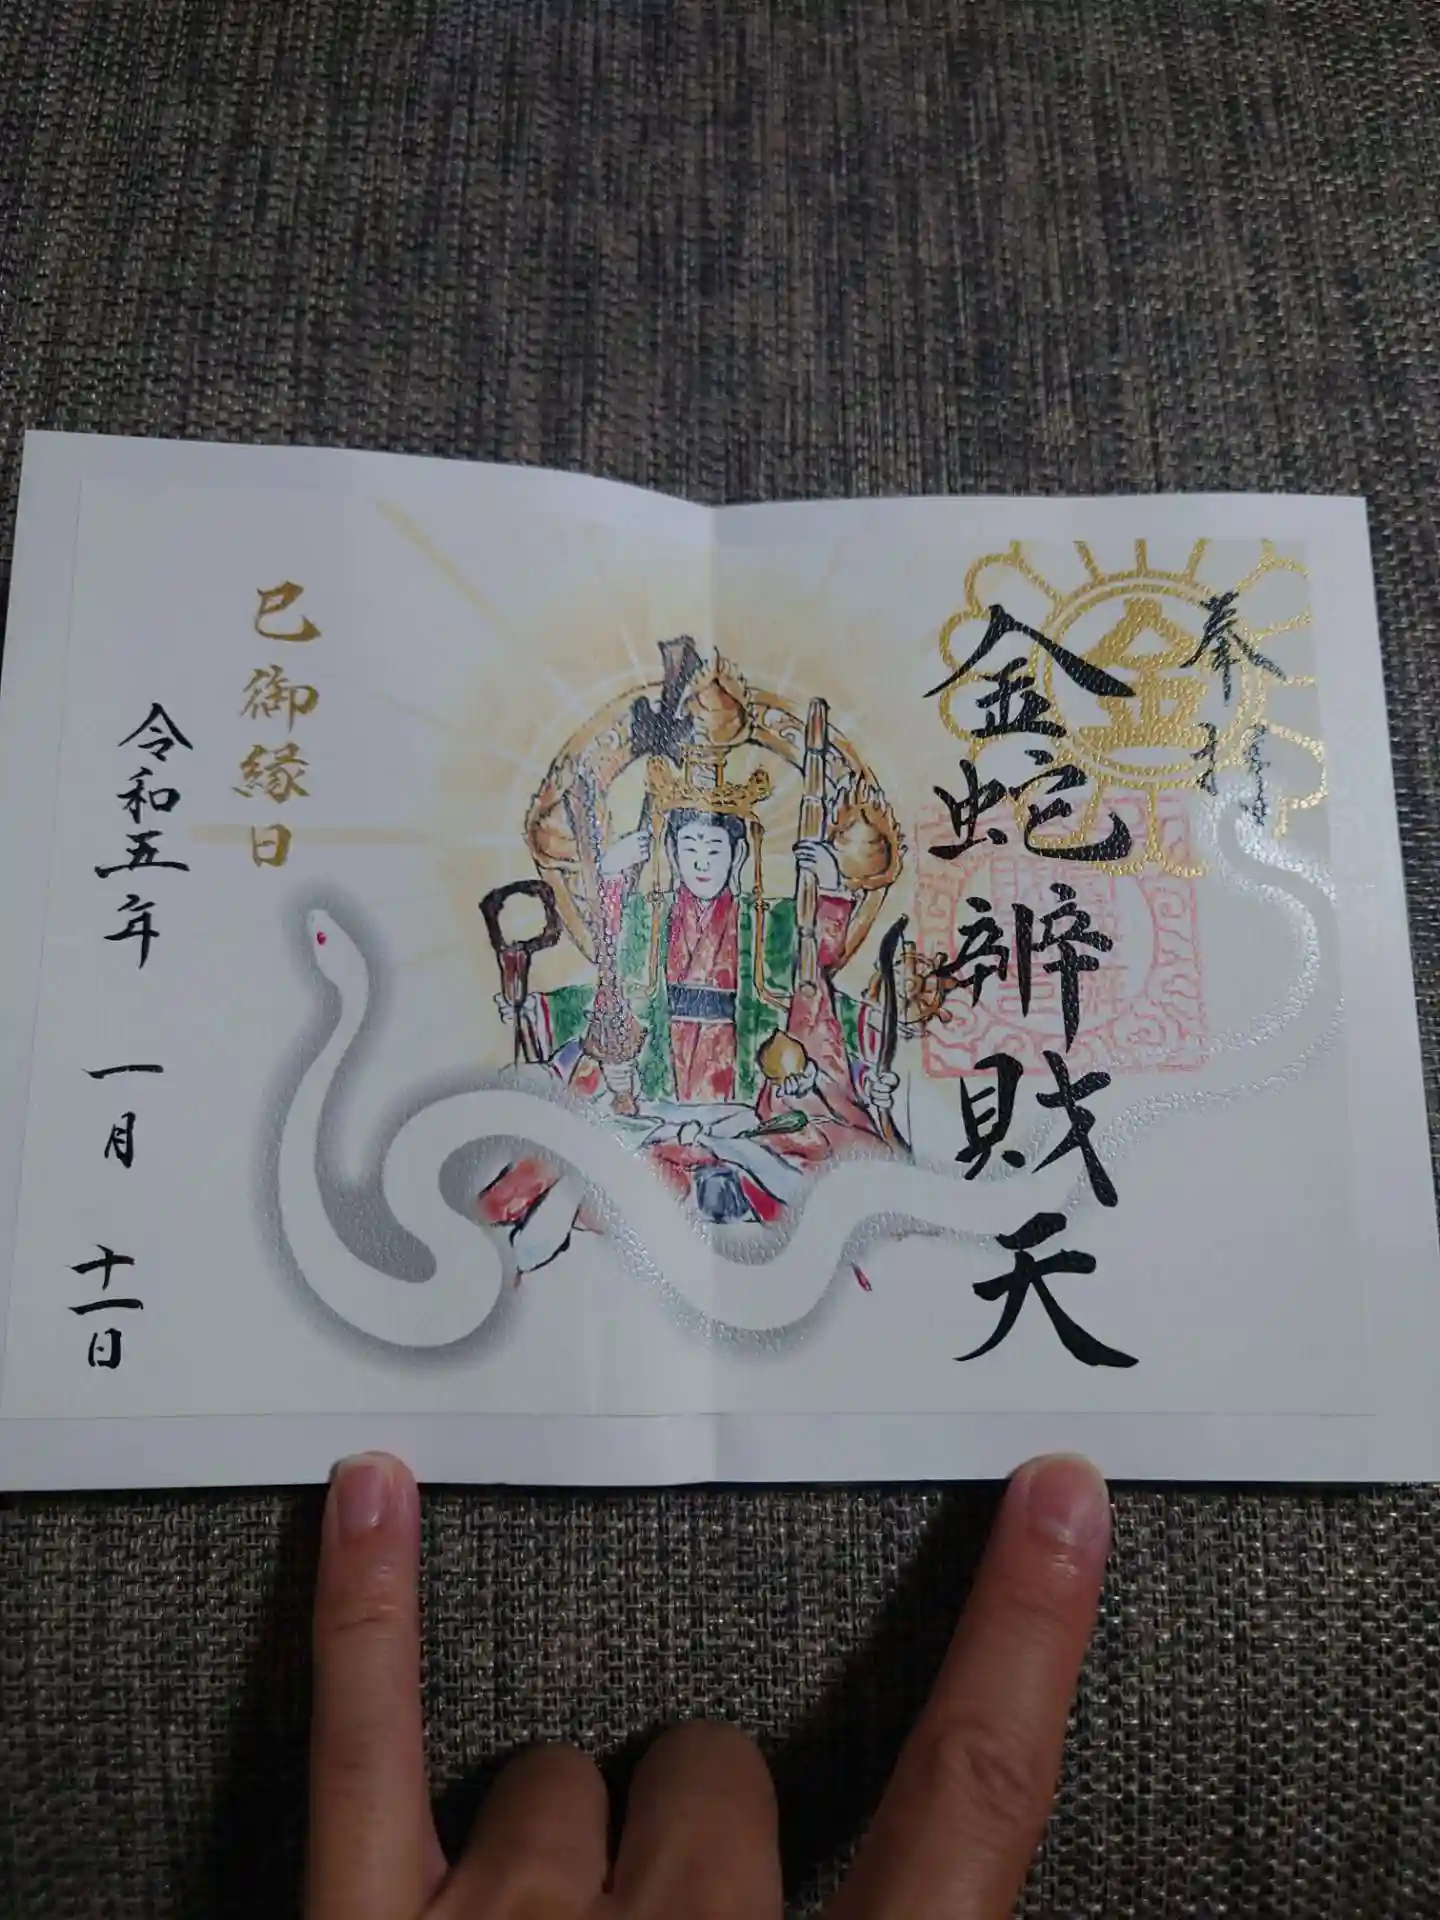 奉拝
金
金蛇辨財天
巳御縁日
令和五年 一月 十一日